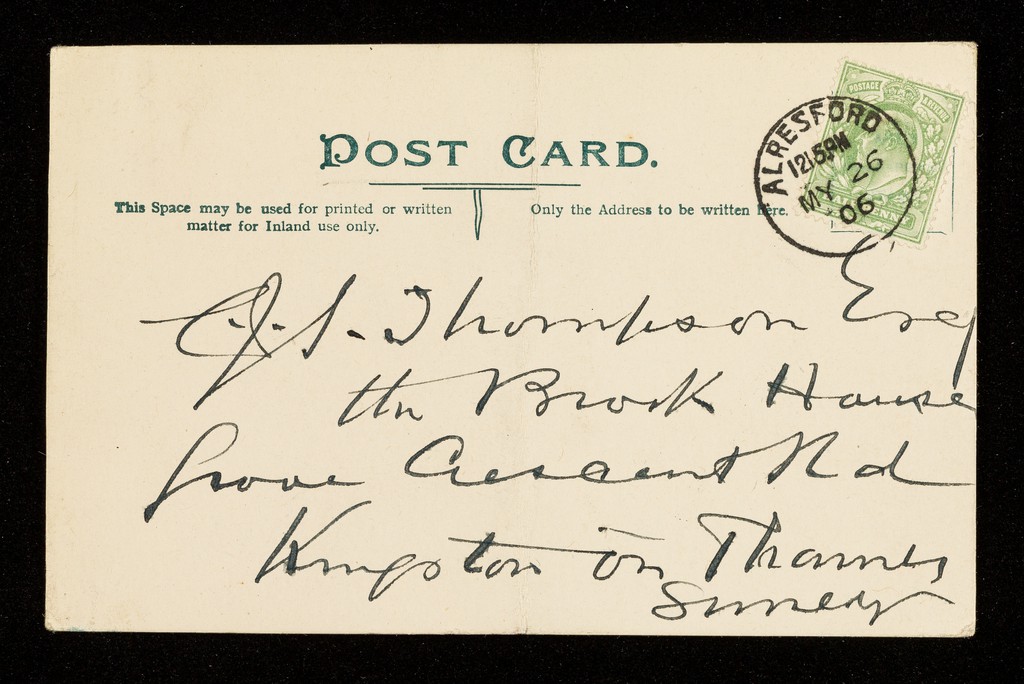 POST CARD.
This Space may be used for printed or written
matter for Inland use only.
Only the Address to be written here.
POSTAGE
ALRESFORD
12.15PM
MY 26
06
J. S. Thompson Esq
the Brook House
Grove Crescent Rd
Kingston on Thames
Surrey